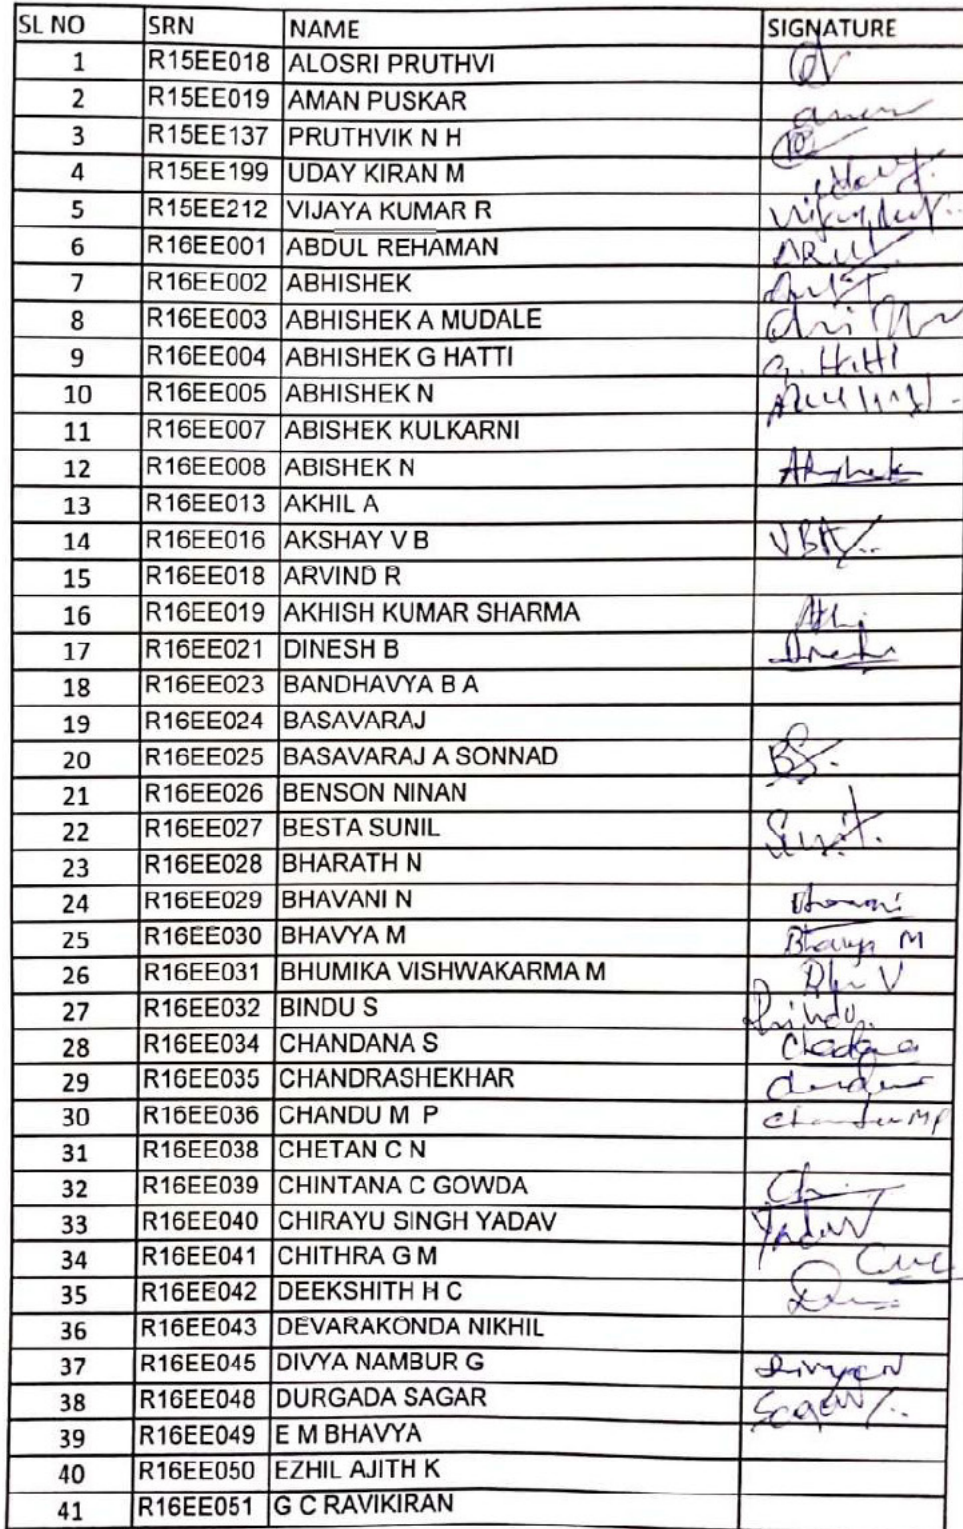 SL NO SRN NAME SIGNATURE
1 R15EE018 ALOSRI PRUTHVI
2 R15EE019 AMAN PUSKAR
3 R15EE137 PRUTHVIK N H
4 R15EE199 UDAY KIRAN M
5 R15EE212 VIJAYA KUMAR R
6 R16EE001 ABDUL REHAMAN
7 R16EE002 ABHISHEK
8 R16EE003 ABHISHEK A MUDALE
9 R16EE004 ABHISHEK G HATTI G. Hatti
10 R16EE005 ABHISHEK N
11 R16EE007 ABISHEK KULKARNI
12 R16EE008 ABISHEK N Abishek
13 R16EE013 AKHIL A
14 R16EE016 AKSHAY V B VBA
15 R16EE018 ARVIND R
16 R16EE019 AKHISH KUMAR SHARMA
17 R16EE021 DINESH B Dinesh
18 R16EE023 BANDHAVYA B A
19 R16EE024 BASAVARAJ
20 R16EE025 BASAVARAJ A SONNAD BS.
21 R16EE026 BENSON NINAN
22 R16EE027 BESTA SUNIL
23 R16EE028 BHARATH N
24 R16EE029 BHAVANI N
25 R16EE030 BHAVYA M Bhavya M
26 R16EE031 BHUMIKA VISHWAKARMA M Bhu V
27 R16EE032 BINDU S Bindu
28 R16EE034 CHANDANA S
29 R16EE035 CHANDRASHEKHAR
30 R16EE036 CHANDU M P Chandu MP
31 R16EE038 CHETAN C N
32 R16EE039 CHINTANA C GOWDA
33 R16EE040 CHIRAYU SINGH YADAV Yadav
34 R16EE041 CHITHRA G M
35 R16EE042 DEEKSHITH H C
36 R16EE043 DEVARAKONDA NIKHIL
37 R16EE045 DIVYA NAMBUR G Divya N
38 R16EE048 DURGADA SAGAR Sagar
39 R16EE049 E M BHAVYA
40 R16EE050 EZHIL AJITH K
41 R16EE051 G C RAVIKIRAN